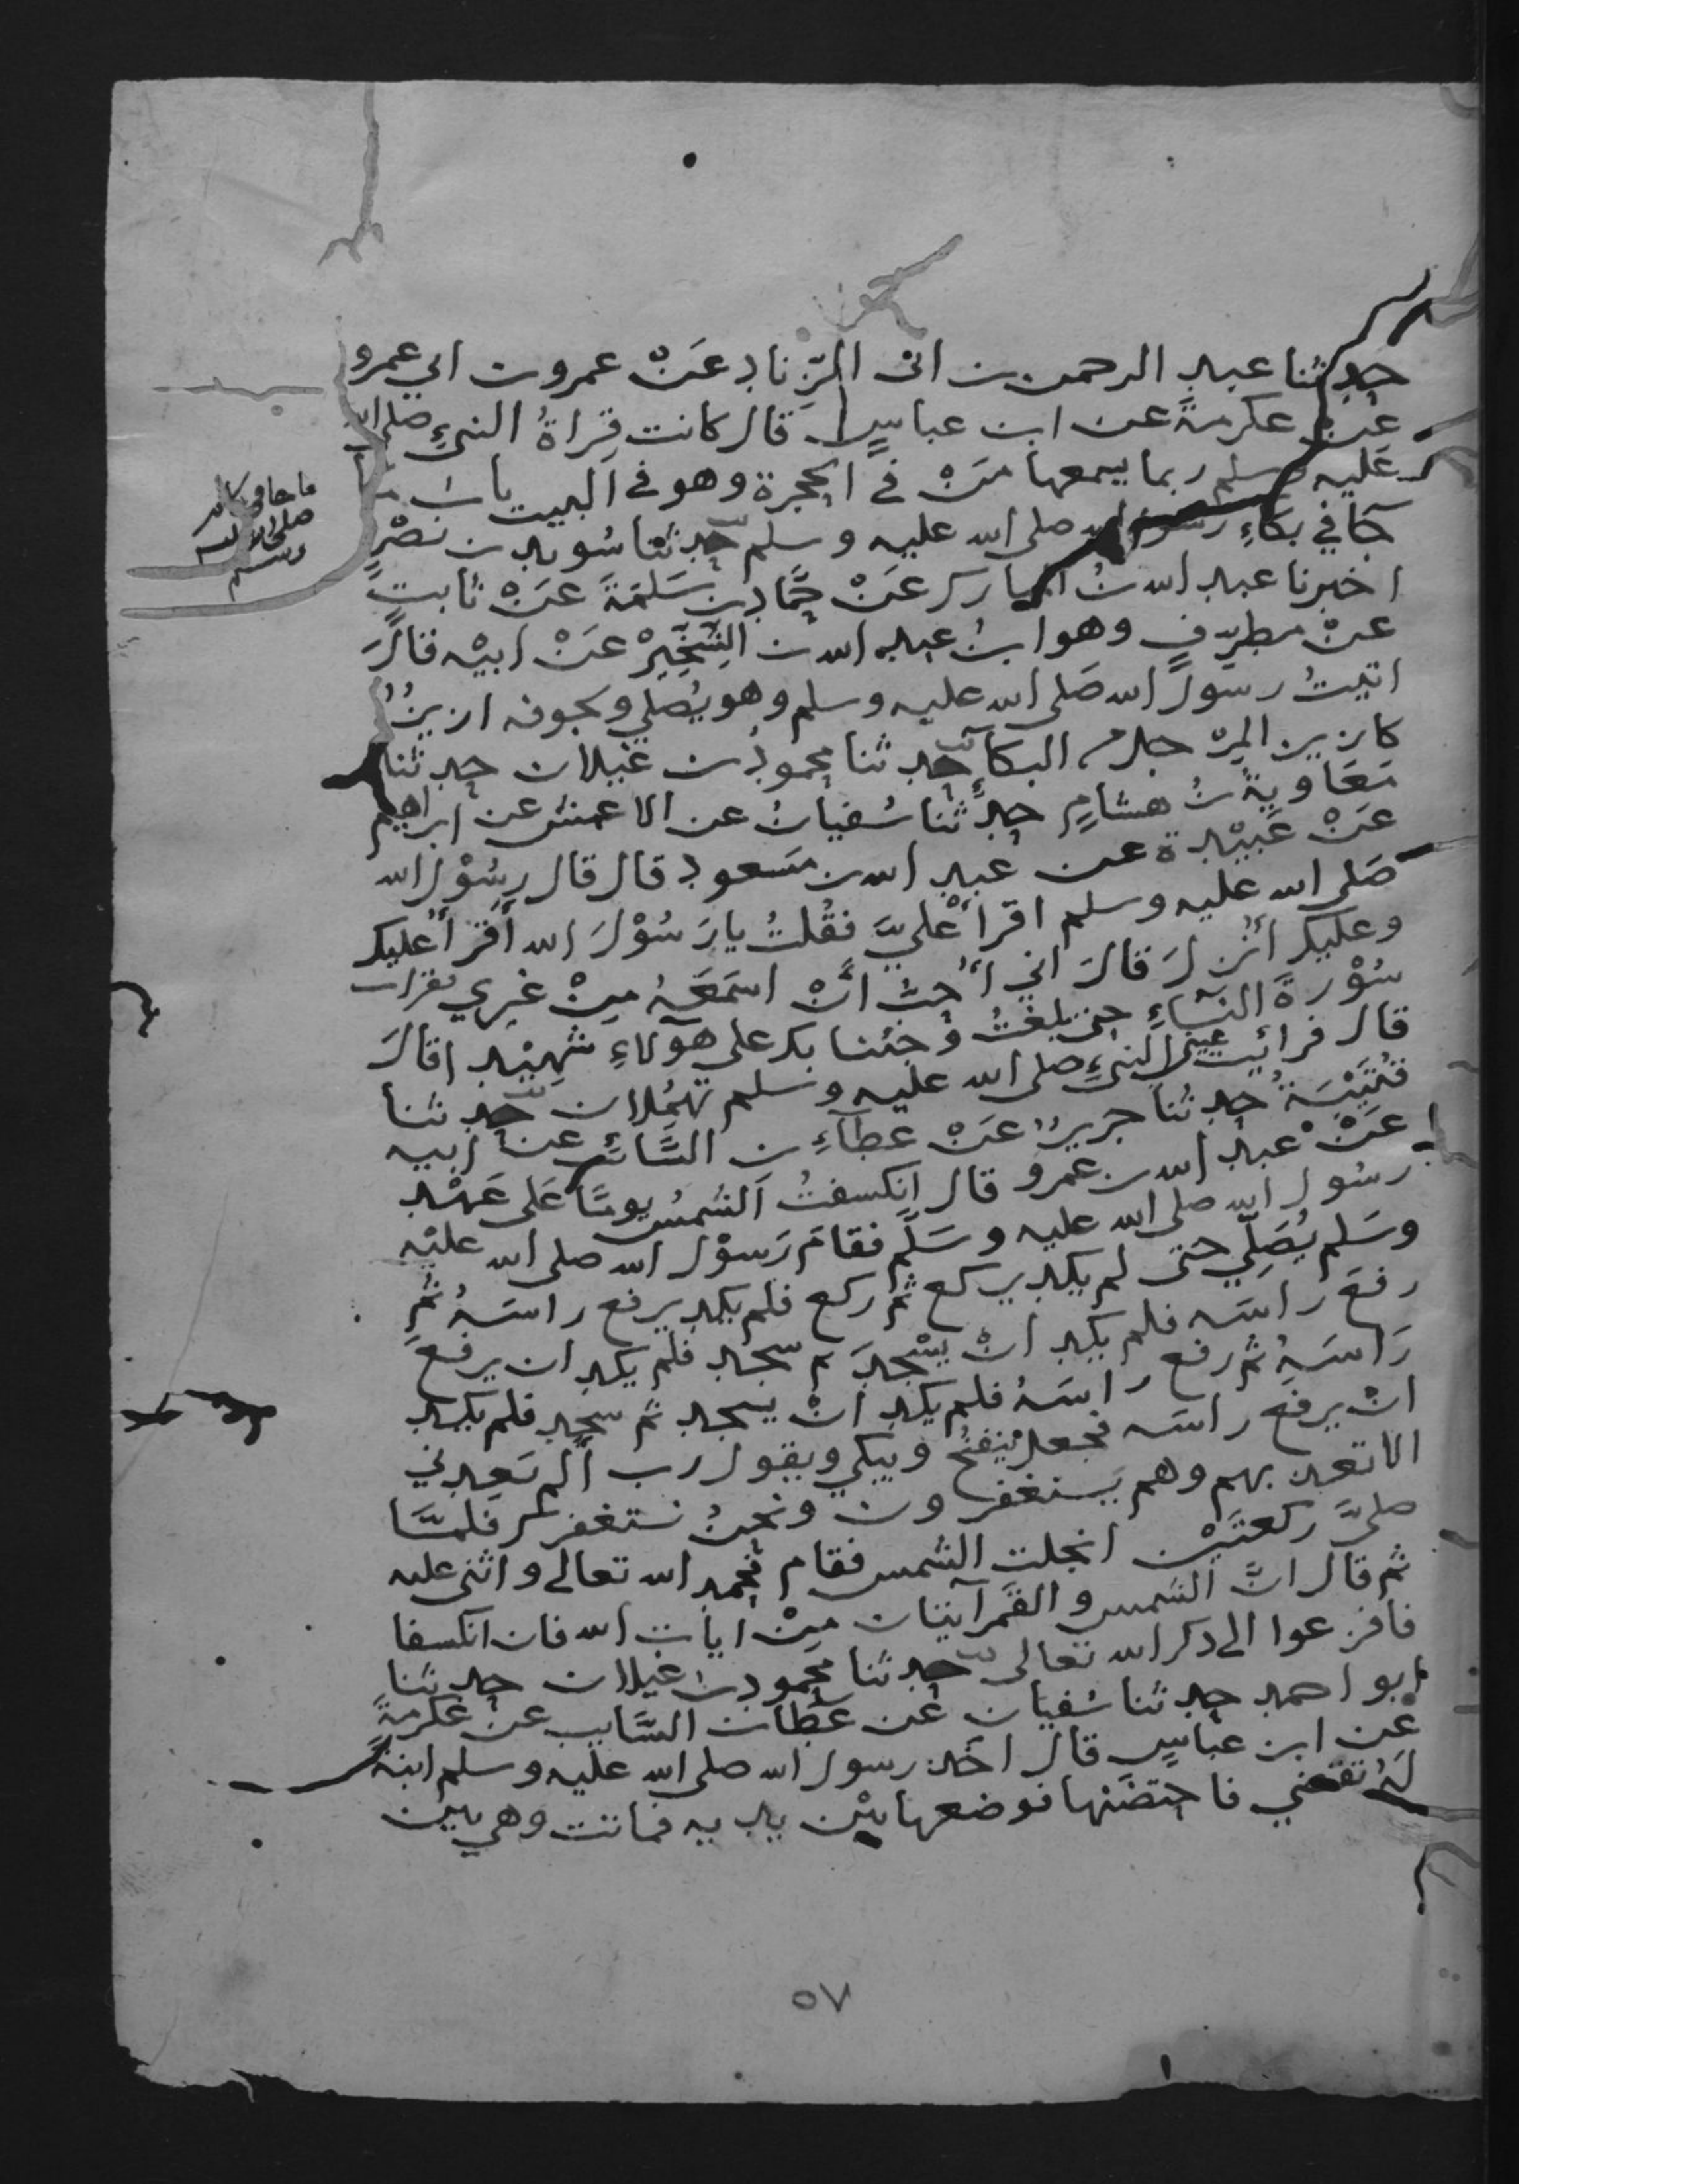 حدثنا عبد الرحمن بن ابى الزِّناد عَنْ عمرو بن ابي عمرو
عن عكرمةَ عن ابن عباسٍ قال كانت قِراةُ النبيِّ صلى الله
عليه وسلم ربما يسمعها مَنْ في الحجرة وهو في البيت باب ما
جَآ في بكآءِ رسول الله صلى الله عليه وسلم حدثنا سُويد بن نصْرٍ
اخبرنا عبد الله بنُ المبارك عَنْ حَمَّاد بن سَلمَةَ عَنْ ثابتٍ
عنْ مطرّفٍ وهو ابنُ عبد الله بن الشِّخِّيْرْ عَنْ ابيْه قالَ
اتيتُ رسوْلَ الله صَلى الله عليه وسلم وهو يُصلي ولجوفه ازيزٌ
كازيز المِرْجل من البكآءِ حدثنا محمودُ بن غيلان حدثنا
مَعَاويةُ بنُ هشامٍ حدَّثنا سُفيانُ عن الاعمش عن ابراهيم
عَنْ عَبيْدة عن عبد الله بن مَسَعود قال قال رسُوْل الله
صَلى الله عليه وسلم اقرأ عَليَّ فقُلتُ يا رَسُوْلَ الله أقرَأُ عليك
وعليك أُنزلَ قالَ اني أُحبُّ أنْ اسمَعَهُ مِنْ غيري فقرات
سُوْرةَ النّسَآءِ حتى بلغتُ وجئنا بك على هؤلآءِ شهِيْدا قالَ
قال فرائيت عيني النبيِّ صلى الله عليه وسلم تهمُلان حدثنا
قُتَيْبَةُ حدثنا جريرٌ عَنْ عطآءِ بن السَّائب عن ابيه
عَنْ عبد الله بن عَمرو قال انكسفتُ الشمسُ يومًا عَلى عَهْد
رسُول الله صلى الله عليه وسَلَّم فقامَ رَسوْل الله صلى الله عليْه
وسَلم يُصَلّي حتى لم يكد يركع ثم ركع فلم يكد يرفع راسَهُ ثم
رفعَ راسَه فلم يكد انْ يسْجدَ ثم سجد فلم يكد ان يرفعَ
رَاسَهُ ثم رفع راسَهُ فلم يكد انْ يسجد ثم سجد فلم يكد
انْ يرفع راسَه فجعل ينفُخُ ويبكي ويقول رب ألم تعِدني
الا تعذبهم وهم يَستغفرون ونحنُ نستغفرك فلمَّا
صلىَّ ركعتَيْن انجلت الشمس فقام فحمد الله تعالى واثنى عليه
ثم قال انَّ الشمس والقمرآيتان مِنْ ايات الله فان انكسفا
فافزعوا الى ذكر الله تعالى حدثنا محمود بن غيلان حدثنا
ابو احمد حدثنا سُفيان عَن عَطا بن السَّايب عن عكرمةَ
عن ابن عباسٍ قال اخَذ رسول الله صلى الله عليه وسلم ابنةً
لهُ تقضي فاحتضَنها فوضعها بيْن يديه فماتت وهي بين
ما جا في بكا
صلى الله عليه
وسلم
٥٧